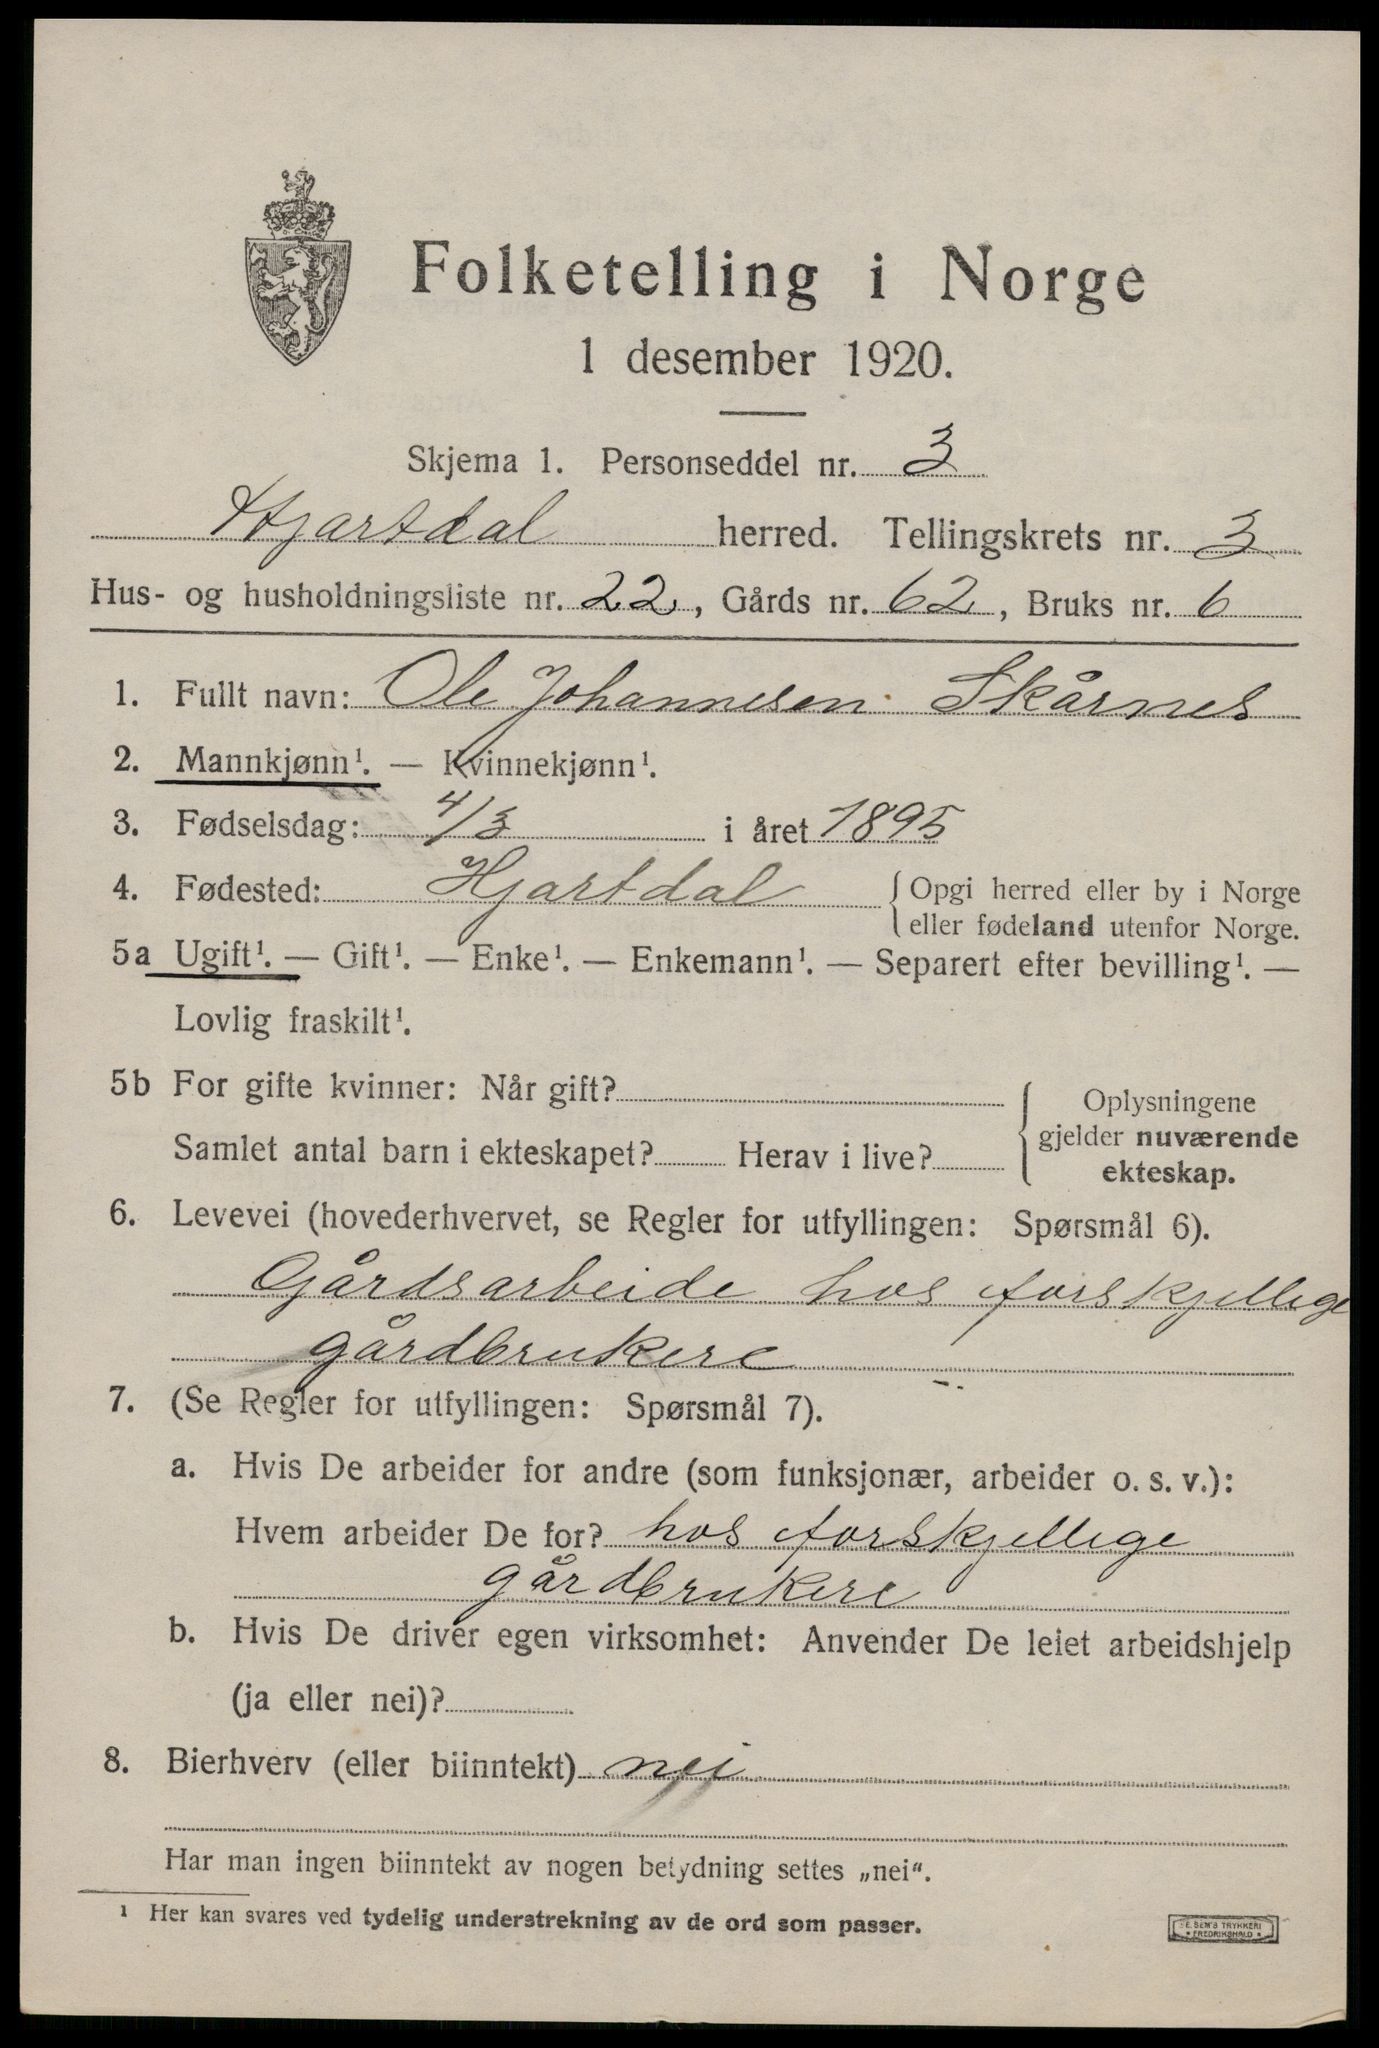 Folketelling i Norge
1 desember 1920.
Skjema 1. Personseddel nr. 3
Hjartdal herred. Tellingskrets nr. 3
Hus- og husholdningsliste nr. 22, Gårds nr. 62, Bruks nr. 6
1. Fullt navn: Ole Johannesen Skårnes
2. Mannkjønn¹. — Kvinnekjønn¹.
3. Fødselsdag: 4/3 i året 1895
4. Fødested: Hjartdal { Opgi herred eller by i Norge
eller fødeland utenfor Norge.
5a Ugift¹. — Gift¹. — Enke¹. — Enkemann¹. — Separert efter bevilling¹. —
Lovlig fraskilt¹.
5b For gifte kvinner: Når gift?
Samlet antal barn i ekteskapet? Herav i live?
Oplysningene
gjelder nuværende
ekteskap.
6. Levevei (hovederhvervet, se Regler for utfyllingen: Spørsmål 6).
Gårdsarbeide hos forskjellige
gårdbrukere
7. (Se Regler for utfyllingen: Spørsmål 7).
a. Hvis De arbeider for andre (som funksjonær, arbeider o. s. v.):
Hvem arbeider De for? hos forskjellige
gårdbrukere
b. Hvis De driver egen virksomhet: Anvender De leiet arbeidshjelp
(ja eller nei)?
8. Bierhverv (eller biinntekt) nei
Har man ingen biinntekt av nogen betydning settes „nei“.
¹ Her kan svares ved tydelig understrekning av de ord som passer.
E. SEM'S TRYKKERI
* FREDRIKSHALD *